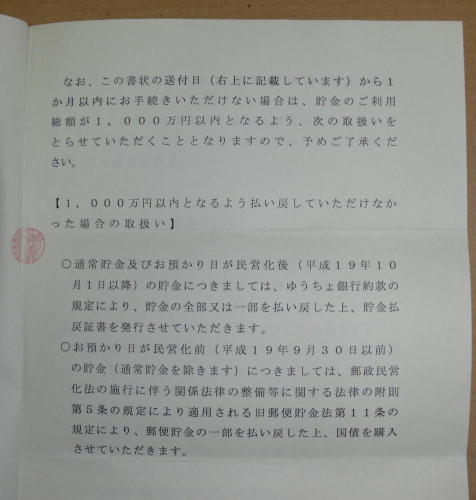 なお、この書状の送付日(右上に記載しています)から1
か月以内にお手続きいただけない場合は、貯金のご利用
総額が1,000万円以内となるよう、次の取扱いを
とらせていただくこととなりますので、予めご了承くだ
さい。
【1,000万円以内となるよう払い戻していただけなか
った場合の取扱い】
○通常貯金及びお預かり日が民営化後(平成19年10
月1日以降)の貯金につきましては、ゆうちょ銀行約款の
規定により、貯金の全部又は一部を払い戻した上、貯金払
戻証書を発行させていただきます。
○お預かり日が民営化前(平成19年9月30日以前)
の貯金(通常貯金を除きます)につきましては、郵政民営
化法の施行に伴う関係法律の整備等に関する法律の附則
第5条の規定により適用される旧郵便貯金法第11条の
規定により、郵便貯金の一部を払い戻した上、国債を購入
させていただきます。